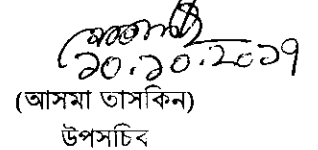 ১০.১০.২০১৭
(আসমা তাসকিন)
উপসচিব